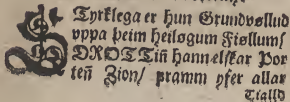 STyrklega er hun Grundvøllud
vppa þeim heilogum Fiøllum/
DROTTiñ hann elskar Por
teñ Zion/ framm yfer allar
Tialld